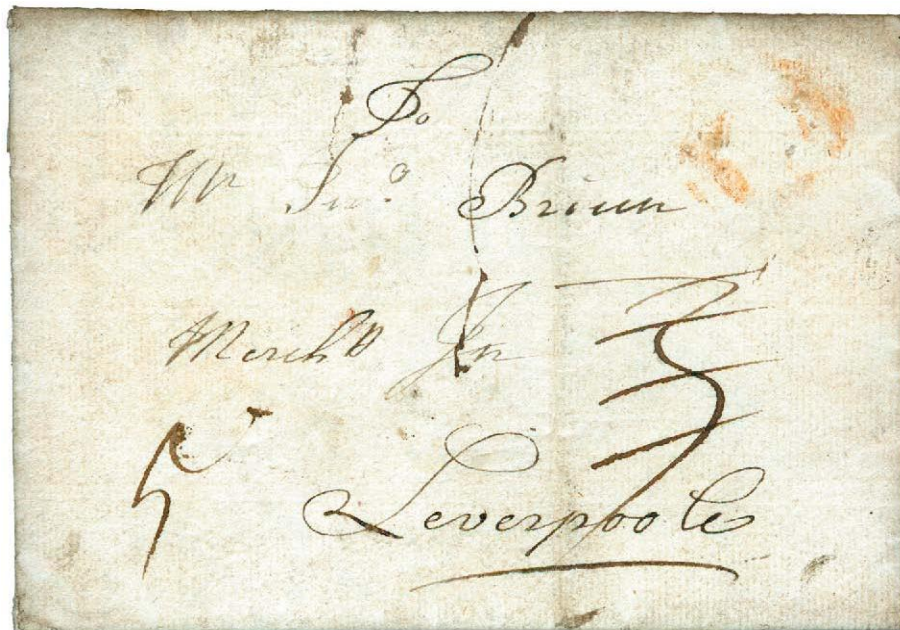 To
Mr Jno. Brium
Merchtt In
5 3
Leverpoole